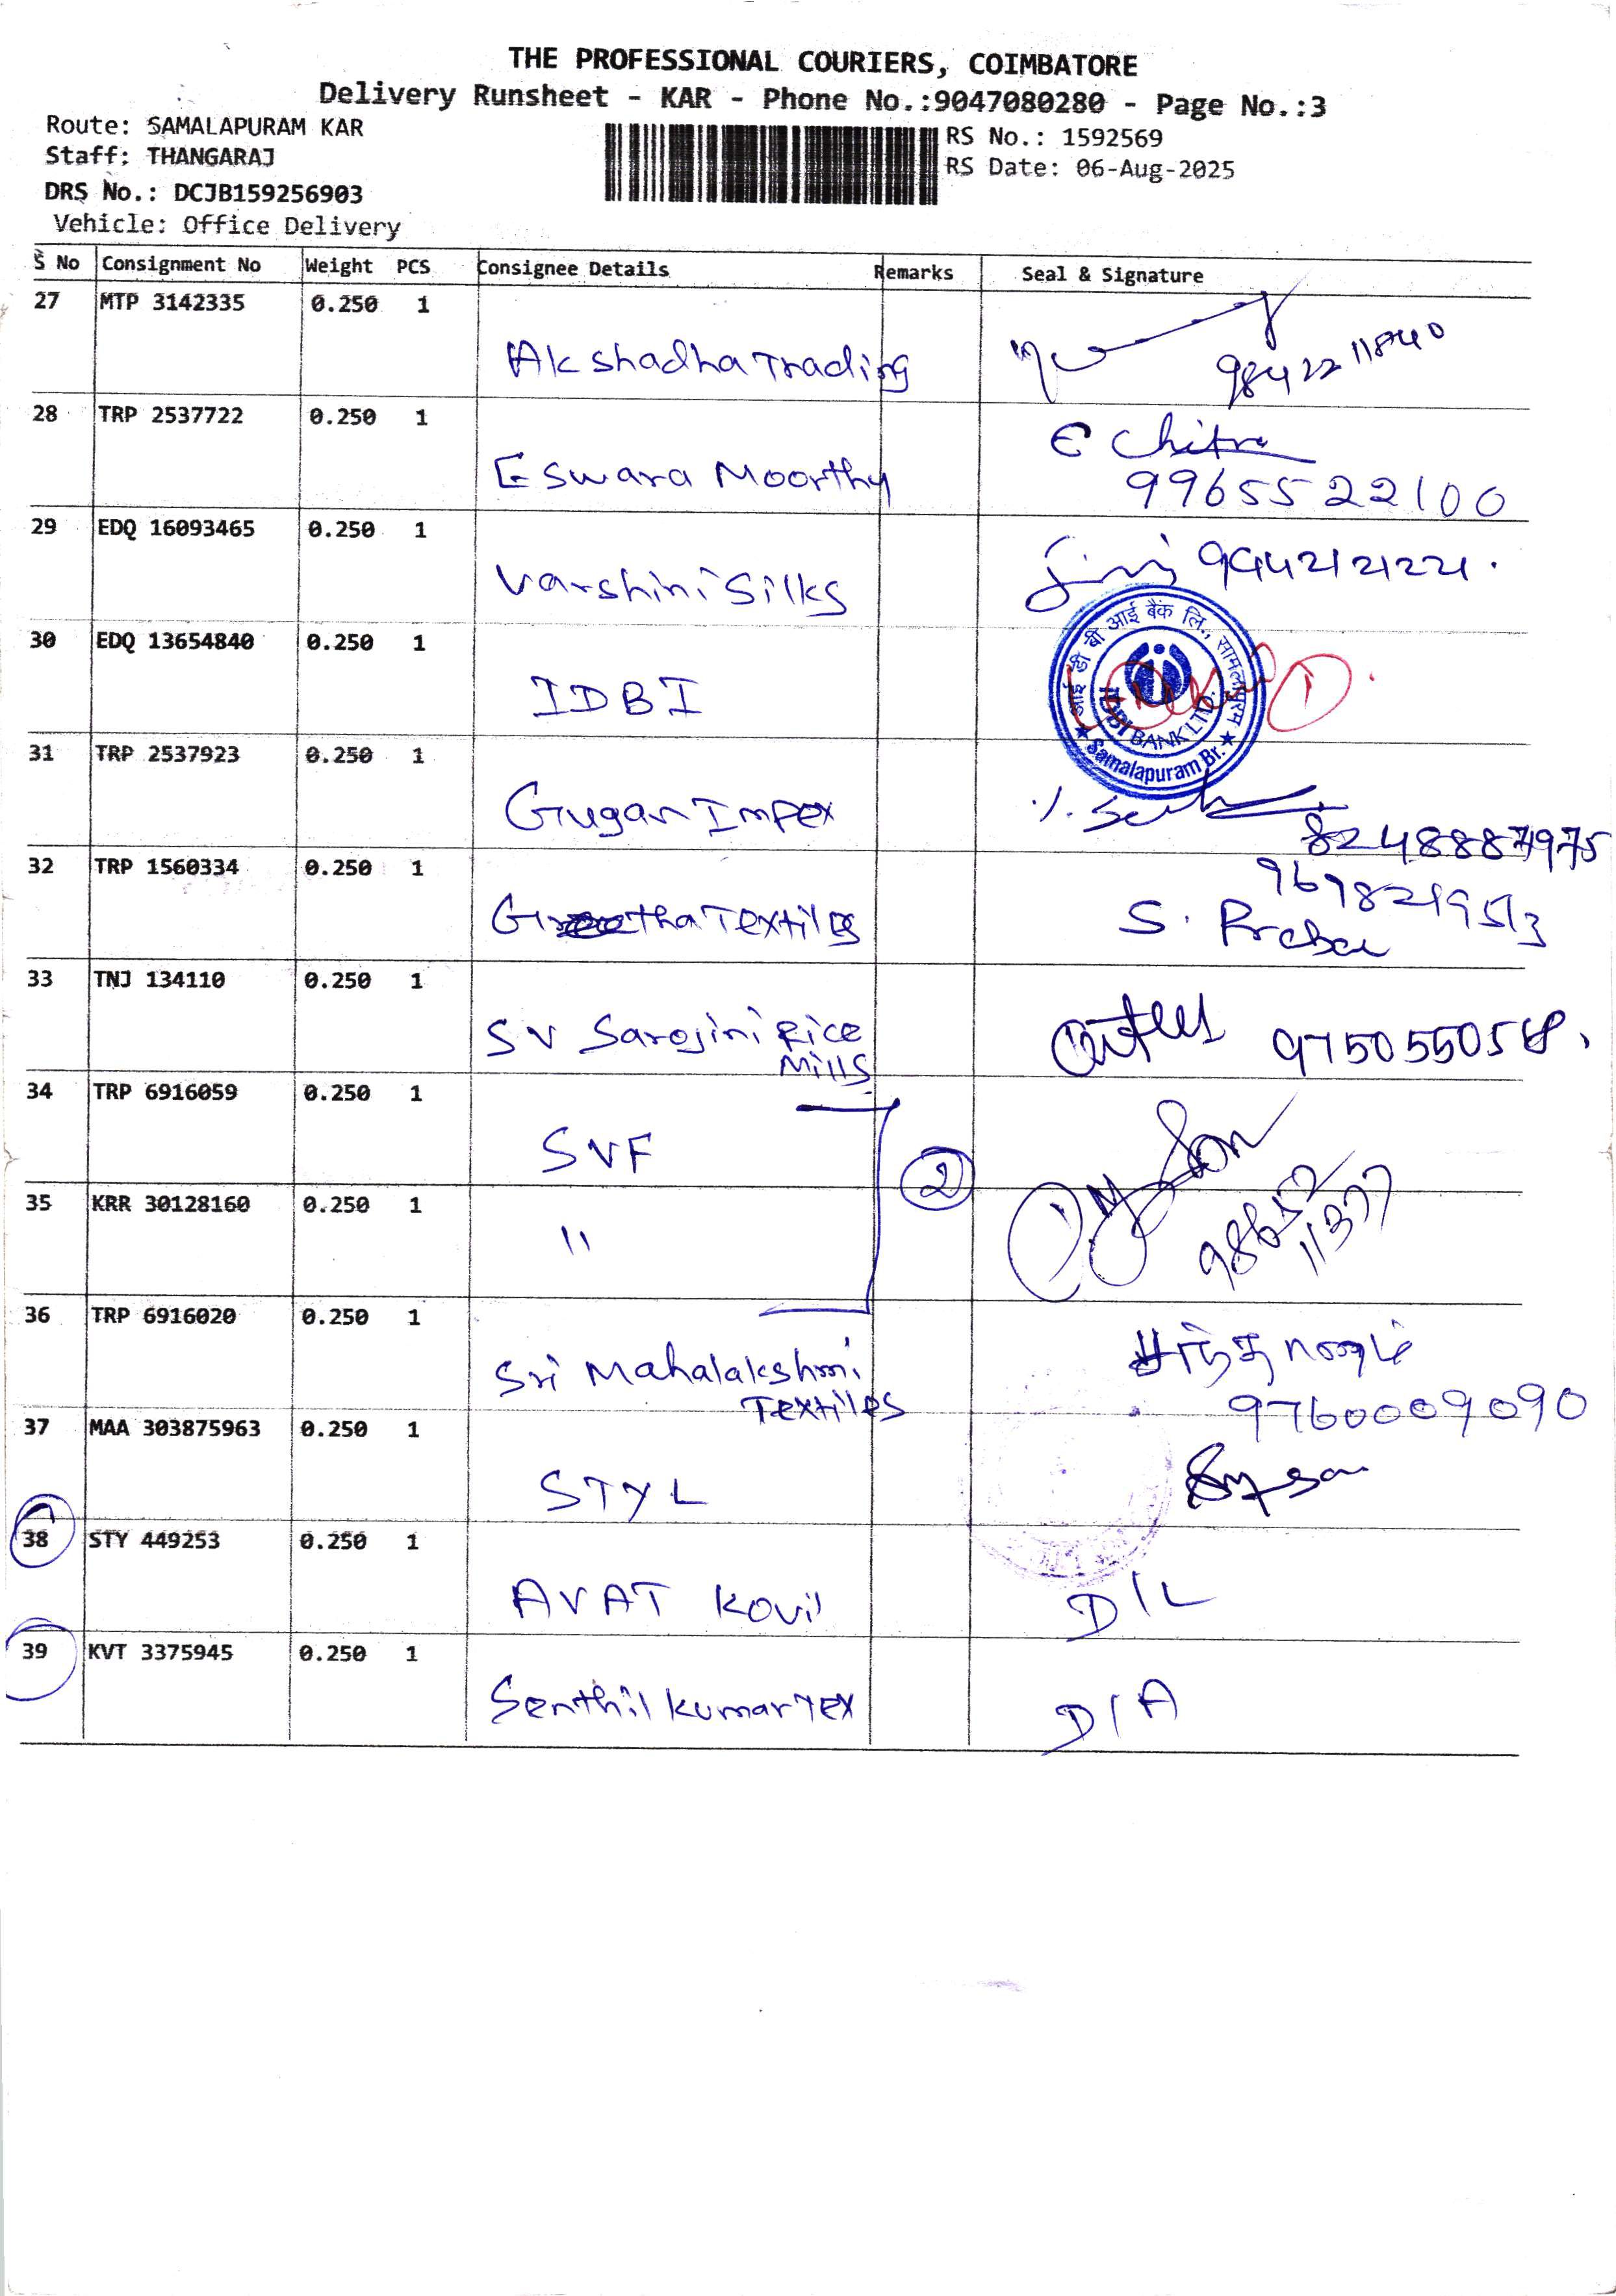 THE PROFESSIONAL COURIERS, COIMBATORE
Delivery Runsheet - KAR - Phone No.:9047080280 - Page No.:3
Route: SAMALAPURAM KAR
Staff: THANGARAJ
DRS No.: DCJB159256903
Vehicle: Office Delivery
RS No.: 1592569
RS Date: 06-Aug-2025
S No Consignment No Weight PCS Consignee Details Remarks Seal & Signature
27 MTP 3142335 0.250 1
Akshadha Trading
98422 11840
28 TRP 2537722 0.250 1
Eswara Moorthy
E Chitra
9965522100
29 EDQ 16093465 0.250 1
Varshini Silks
9442121221.
30 EDQ 13654840 0.250 1
IDBI
आई डी बी आई बैंक लि., सामलापुरम
IDBI BANK LTD.
★ Samalapuram Br. ★
31 TRP 2537923 0.250 1
Gugan Impex
8248887975
32 TRP 1560334 0.250 1
Geetha Textiles
9698219513
S. Prabu
33 TNJ 134110 0.250 1
SV Sarojini Rice
Mills
34 TRP 6916059 0.250 1
SVF
2
35 KRR 30128160 0.250 1
"
98652
11377
36 TRP 6916020 0.250 1
Sri Mahalakshmi
Textiles
9760009090
37 MAA 303875963 0.250 1
STYL
38 STY 449253 0.250 1
AVAT Kovil
D/L
39 KVT 3375945 0.250 1
Senthil kumar Tex
D/A